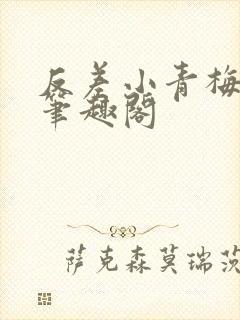 反差小青梅
笔趣阁
萨克森莫瑞茨